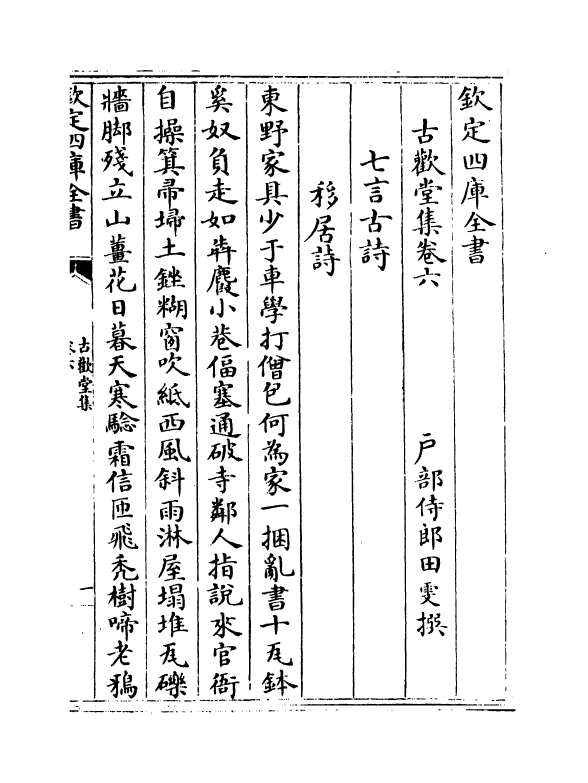 欽定四庫全書
古歡堂集卷六
戶部侍郎田雯撰
七言古詩
移居詩
東野家具少于車學打僧包何為家一捆亂書十瓦鉢
奚奴負走如犇麏小巷偪塞通破寺鄰人指說來官衙
自操箕帚埽土銼糊窗吹紙西風斜雨淋屋塌堆瓦礫
牆脚殘立山薑花日暮天寒驗霜信匝飛禿樹啼老鴉
欽定四庫全書
古歡堂集
卷六
一